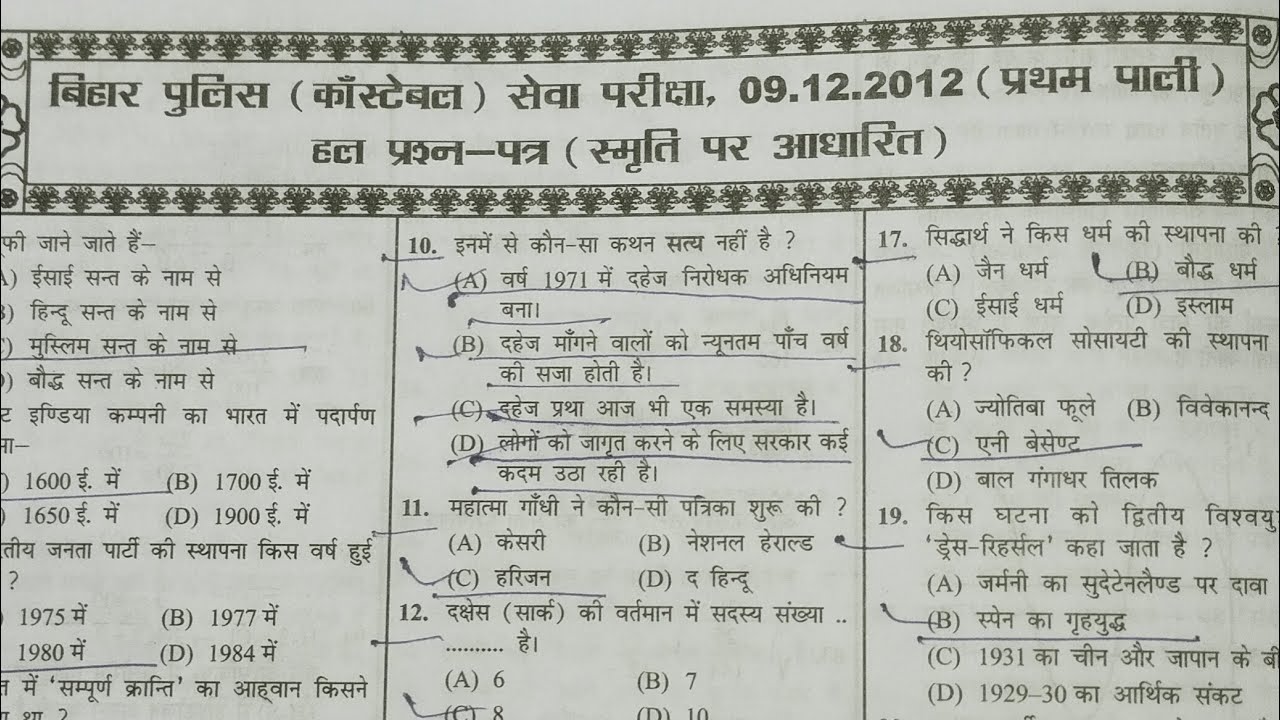 बिहार पुलिस (काँस्टेबल) सेवा परीक्षा, 09.12.2012 (प्रथम पाली)
हल प्रश्न–पत्र (स्मृति पर आधारित)
फी जाने जाते हैं–
A) ईसाई सन्त के नाम से
B) हिन्दू सन्त के नाम से
C) मुस्लिम सन्त के नाम से
D) बौद्ध सन्त के नाम से
ट इण्डिया कम्पनी का भारत में पदार्पण
था–
) 1600 ई. में (B) 1700 ई. में
) 1650 ई. में (D) 1900 ई. में
तीय जनता पार्टी की स्थापना किस वर्ष हुई
?
) 1975 में (B) 1977 में
1980 में (D) 1984 में
त में ‘सम्पूर्ण क्रान्ति’ का आह्वान किसने
था ?
10. इनमें से कौन-सा कथन सत्य नहीं है ?
(A) वर्ष 1971 में दहेज निरोधक अधिनियम
बना।
(B) दहेज माँगने वालों को न्यूनतम पाँच वर्ष
की सजा होती है।
(C) दहेज प्रथा आज भी एक समस्या है।
(D) लोगों को जागृत करने के लिए सरकार कई
कदम उठा रही है।
11. महात्मा गाँधी ने कौन-सी पत्रिका शुरू की ?
(A) केसरी (B) नेशनल हेराल्ड
(C) हरिजन (D) द हिन्दू
12. दक्षेस (सार्क) की वर्तमान में सदस्य संख्या ..
.......... है।
(A) 6 (B) 7
(C) 8 (D) 10
17. सिद्धार्थ ने किस धर्म की स्थापना की ?
(A) जैन धर्म (B) बौद्ध धर्म
(C) ईसाई धर्म (D) इस्लाम
18. थियोसॉफिकल सोसायटी की स्थापना
की ?
(A) ज्योतिबा फूले (B) विवेकानन्द
(C) एनी बेसेण्ट
(D) बाल गंगाधर तिलक
19. किस घटना को द्वितीय विश्वयु
‘ड्रेस-रिहर्सल’ कहा जाता है ?
(A) जर्मनी का सुदेटेनलैण्ड पर दावा
(B) स्पेन का गृहयुद्ध
(C) 1931 का चीन और जापान के बी
(D) 1929–30 का आर्थिक संकट